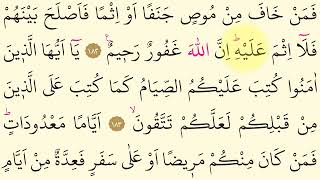 فَمَنْ خَافَ مِنْ مُوصٍ جَنَفًا اَوْ اِثْمًا فَاَصْلَحَ بَيْنَهُمْ
فَلَٓا اِثْمَ عَلَيْهِۜ اِنَّ اللّٰهَ غَفُورٌ رَحٖيمٌ ﴿١٨٢﴾ يَٓا اَيُّهَا الَّذٖينَ
اٰمَنُوا كُتِبَ عَلَيْكُمُ الصِّيَامُ كَمَا كُتِبَ عَلَى الَّذٖينَ
مِنْ قَبْلِكُمْ لَعَلَّكُمْ تَتَّقُونَۙ ﴿١٨٣﴾ اَيَّامًا مَعْدُودَاتٍۜ
فَمَنْ كَانَ مِنْكُمْ مَرٖيضًا اَوْ عَلٰى سَفَرٍ فَعِدَّةٌ مِنْ اَيَّامٍ